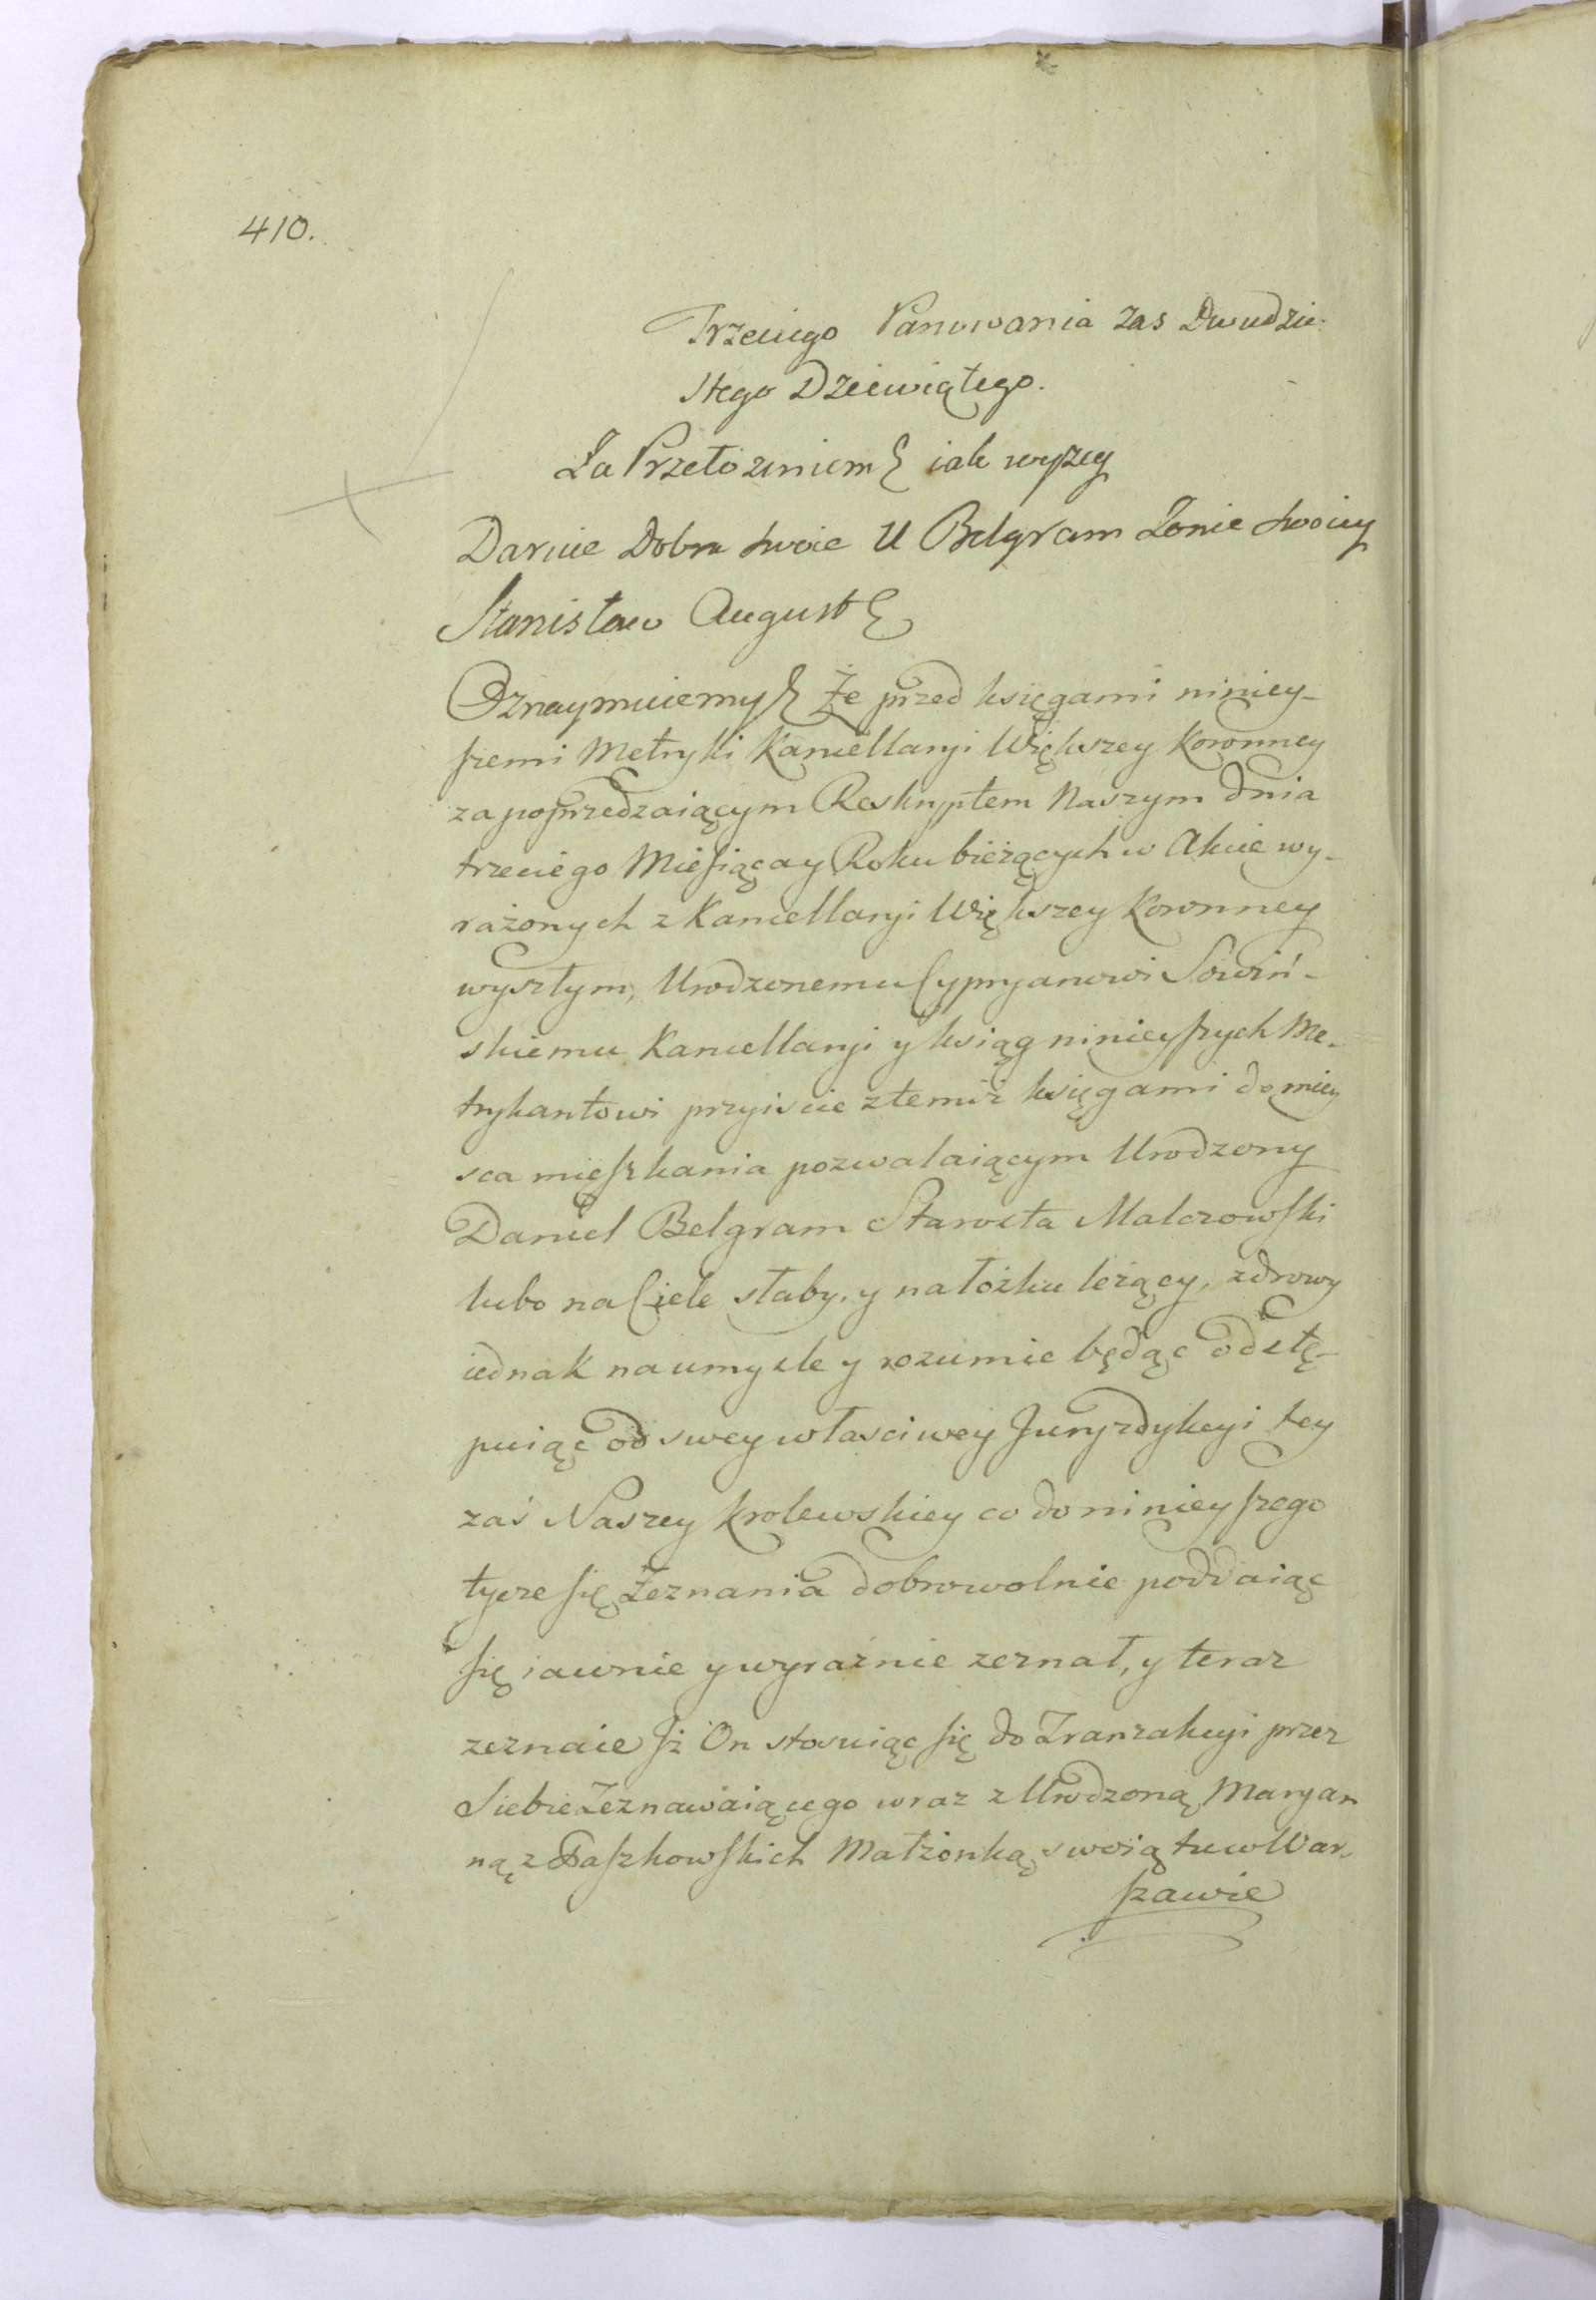 410.
Trzeciego Panowania zas Dwudzie-
stego Dziewiątego.
Za Przełozeniem iak wyzey
Daruie Dobra swoie U Belgram Zonie swoiey
Stanisław August
Oznaymuiemy Że przed księgami niniey-
szemi Metryki Kancellaryi Większey Koronney
za poprzedzaiącym Reskryptem Naszym dnia
trzeciego Miesiąca y Roku bieżących w Akcie wy-
rażonych z Kancellaryi Większey Koronney
wyszłym, Urodzonemu Cypryanowi Sowiń-
skiemu Kancellaryi y ksiąg ninieyszych Me-
trykantowi przyiscie z temiż księgami do miey
sca mieszkania pozwalaiącym Urodzony
Daniel Belgram Starosta Malczowski
lubo na Ciele słaby, y na łóżku leżący, zdrowy
iednak na umysle y rozumie będąc odstę-
puiąc od swey własciwey Juryzdykcyi tey
zaś Naszey Krolewskiey co do ninieyszego
tycze się Zeznania dobrowolnie poddaiąc
się iawnie y wyraźnie zeznał, y teraz
zeznaie iż On stosuiąc się do Tranzakcyi przez
Siebie Zeznawaiącego wraz z Urodzoną Maryan
ną z Paszkowskich Małżonką swoią tu w War-
szawie